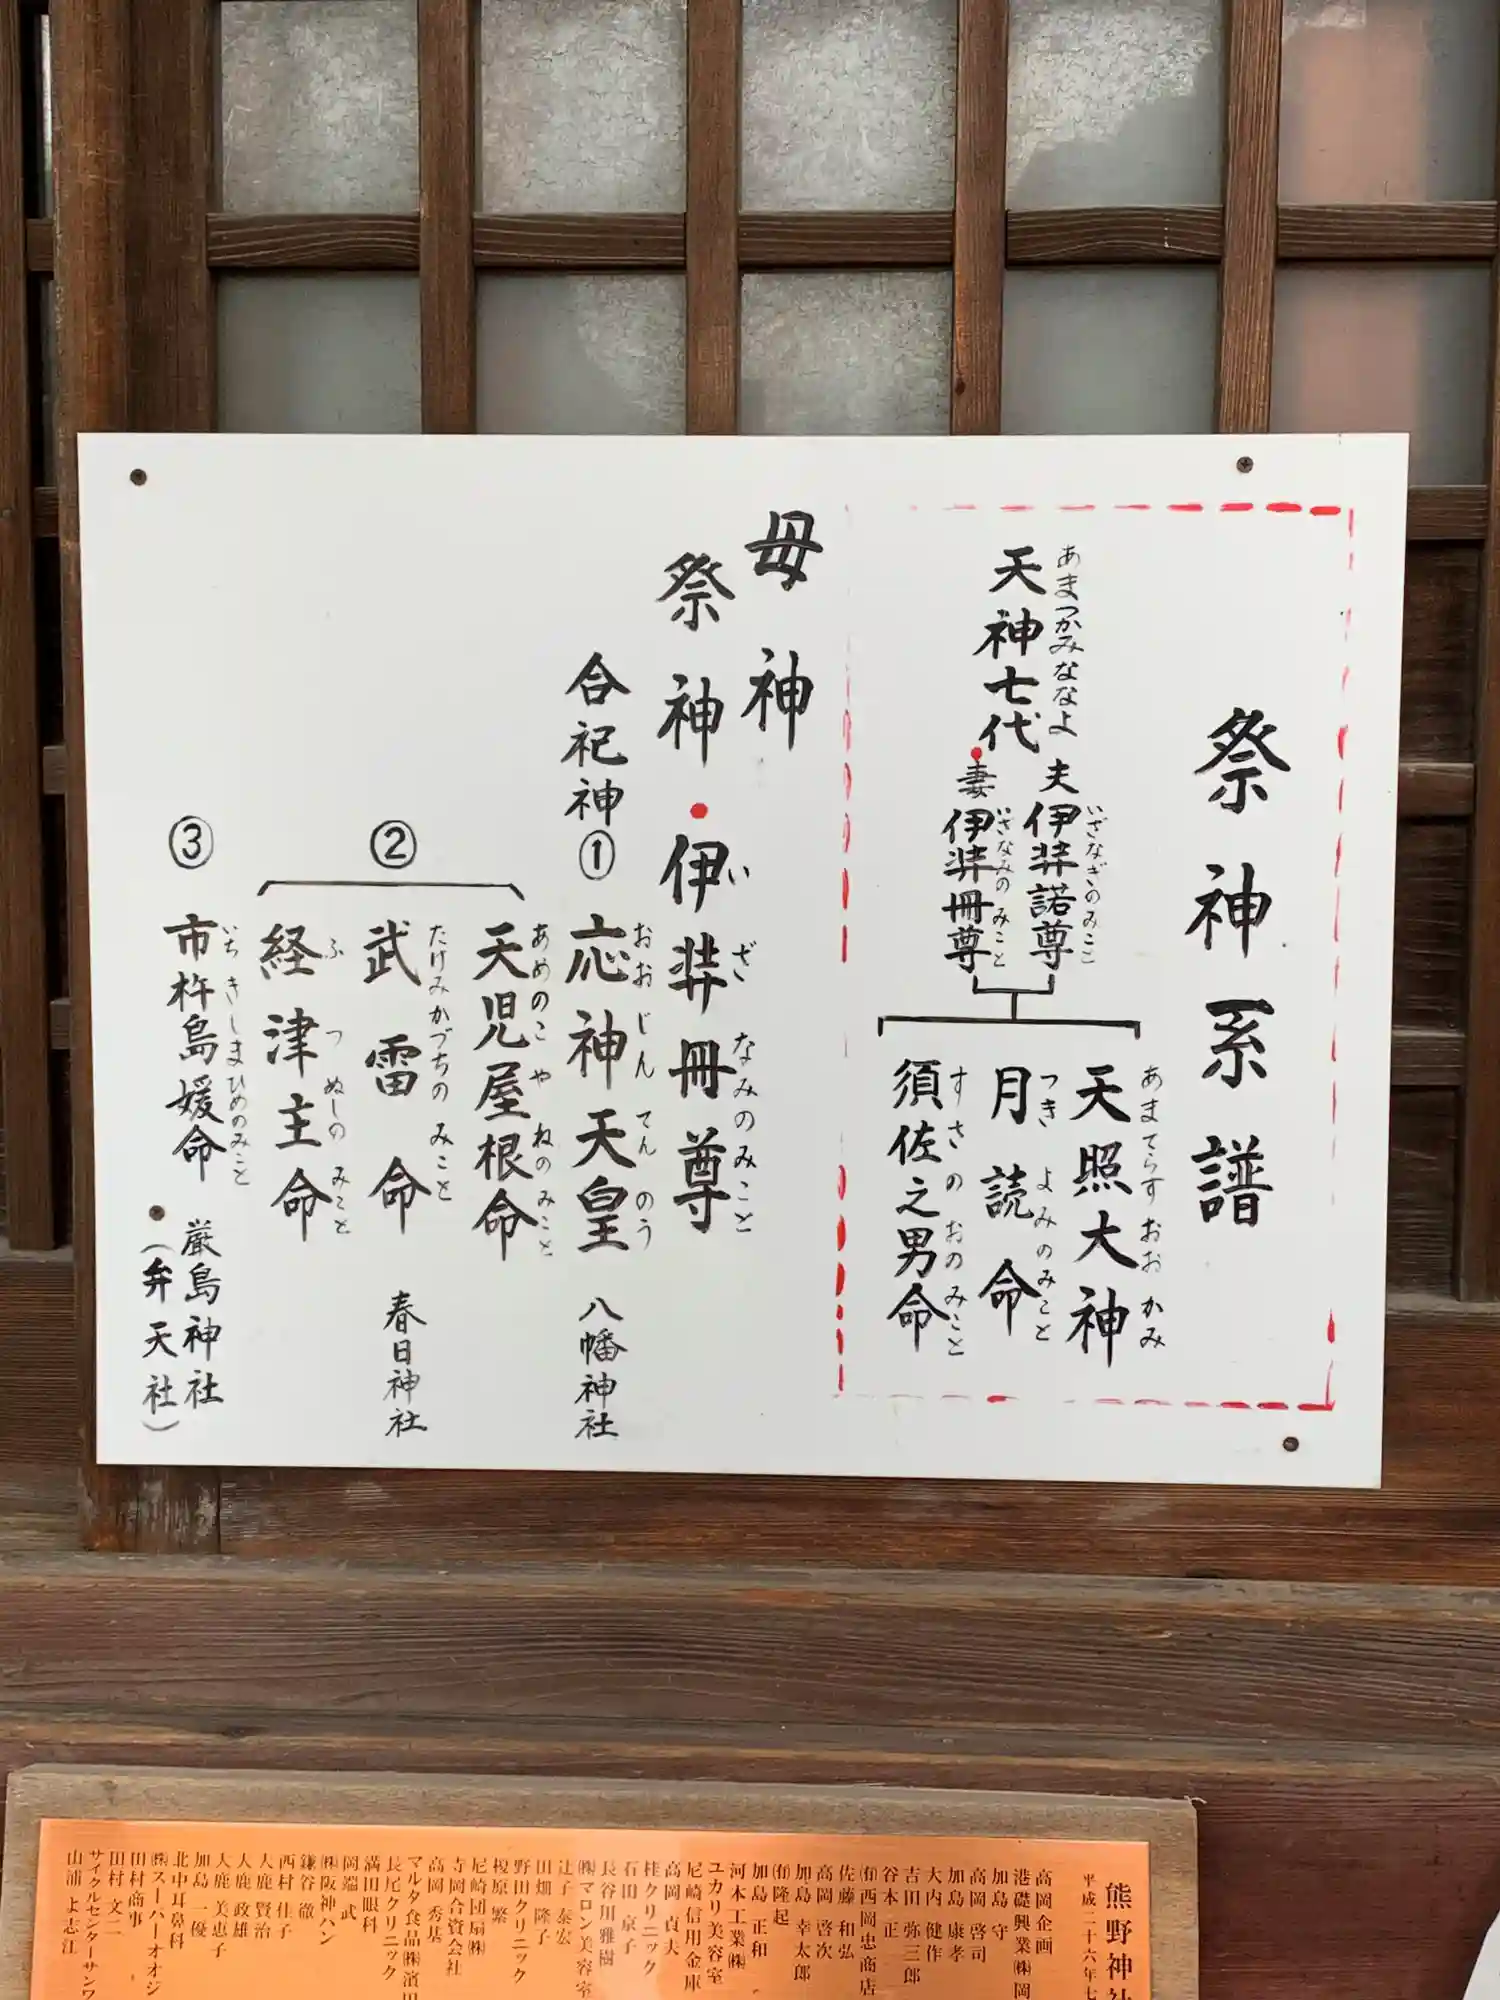 祭神系譜
あまつかみななよ
天神七代
夫 伊弉諾尊
いざなぎのみこと
妻 伊弉冊尊
いさなみのみこと
天照大神
あまてらすおおかみ
月読命
つきよみのみこと
須佐之男命
すさのおのみこと
母神
祭神・伊弉冊尊
いざなみのみこと
合祀神
① 応神天皇 八幡神社
おおじんてんのう
②
天児屋根命
あめのこやねのみこと
武雷命 春日神社
たけみかづちのみこと
経津主命
ふつぬしのみこと
③ 市杵島媛命・厳島神社
いちきしまひめのみこと
(弁天社)
熊野神社
平成二十六年七
高岡企画
港礎興業㈱岡
加島 守
高岡 啓司
加島 康孝
大内 健作
吉田 弥三郎
谷本 正
㈲西岡忠商店
佐藤 和弘
高岡 啓次
加島 幸太郎
㈲隆起
加島 正和
河本工業㈱
ユカリ美容室
尼崎信用金庫
高岡 貞夫
桂クリニック
石田 京子
長谷川雅樹
㈱マロン美容室
辻子 泰宏
田畑 隆子
野田クリニック
榎原 繁
尼崎団扇㈱
寺岡合資会社
高岡 秀基
マルタ食品㈱濱田
長尾クリニック
満田眼科
岡端 武
㈱阪神ハン
鎌谷 徹
西村 佳子
人鹿 賢治
人鹿 政雄
人鹿 美恵子
加島 一優
北中耳鼻科
㈱スーパーオオジ
田村商事
田村 文二
サイクルセンターサンワ
山浦 よ志江